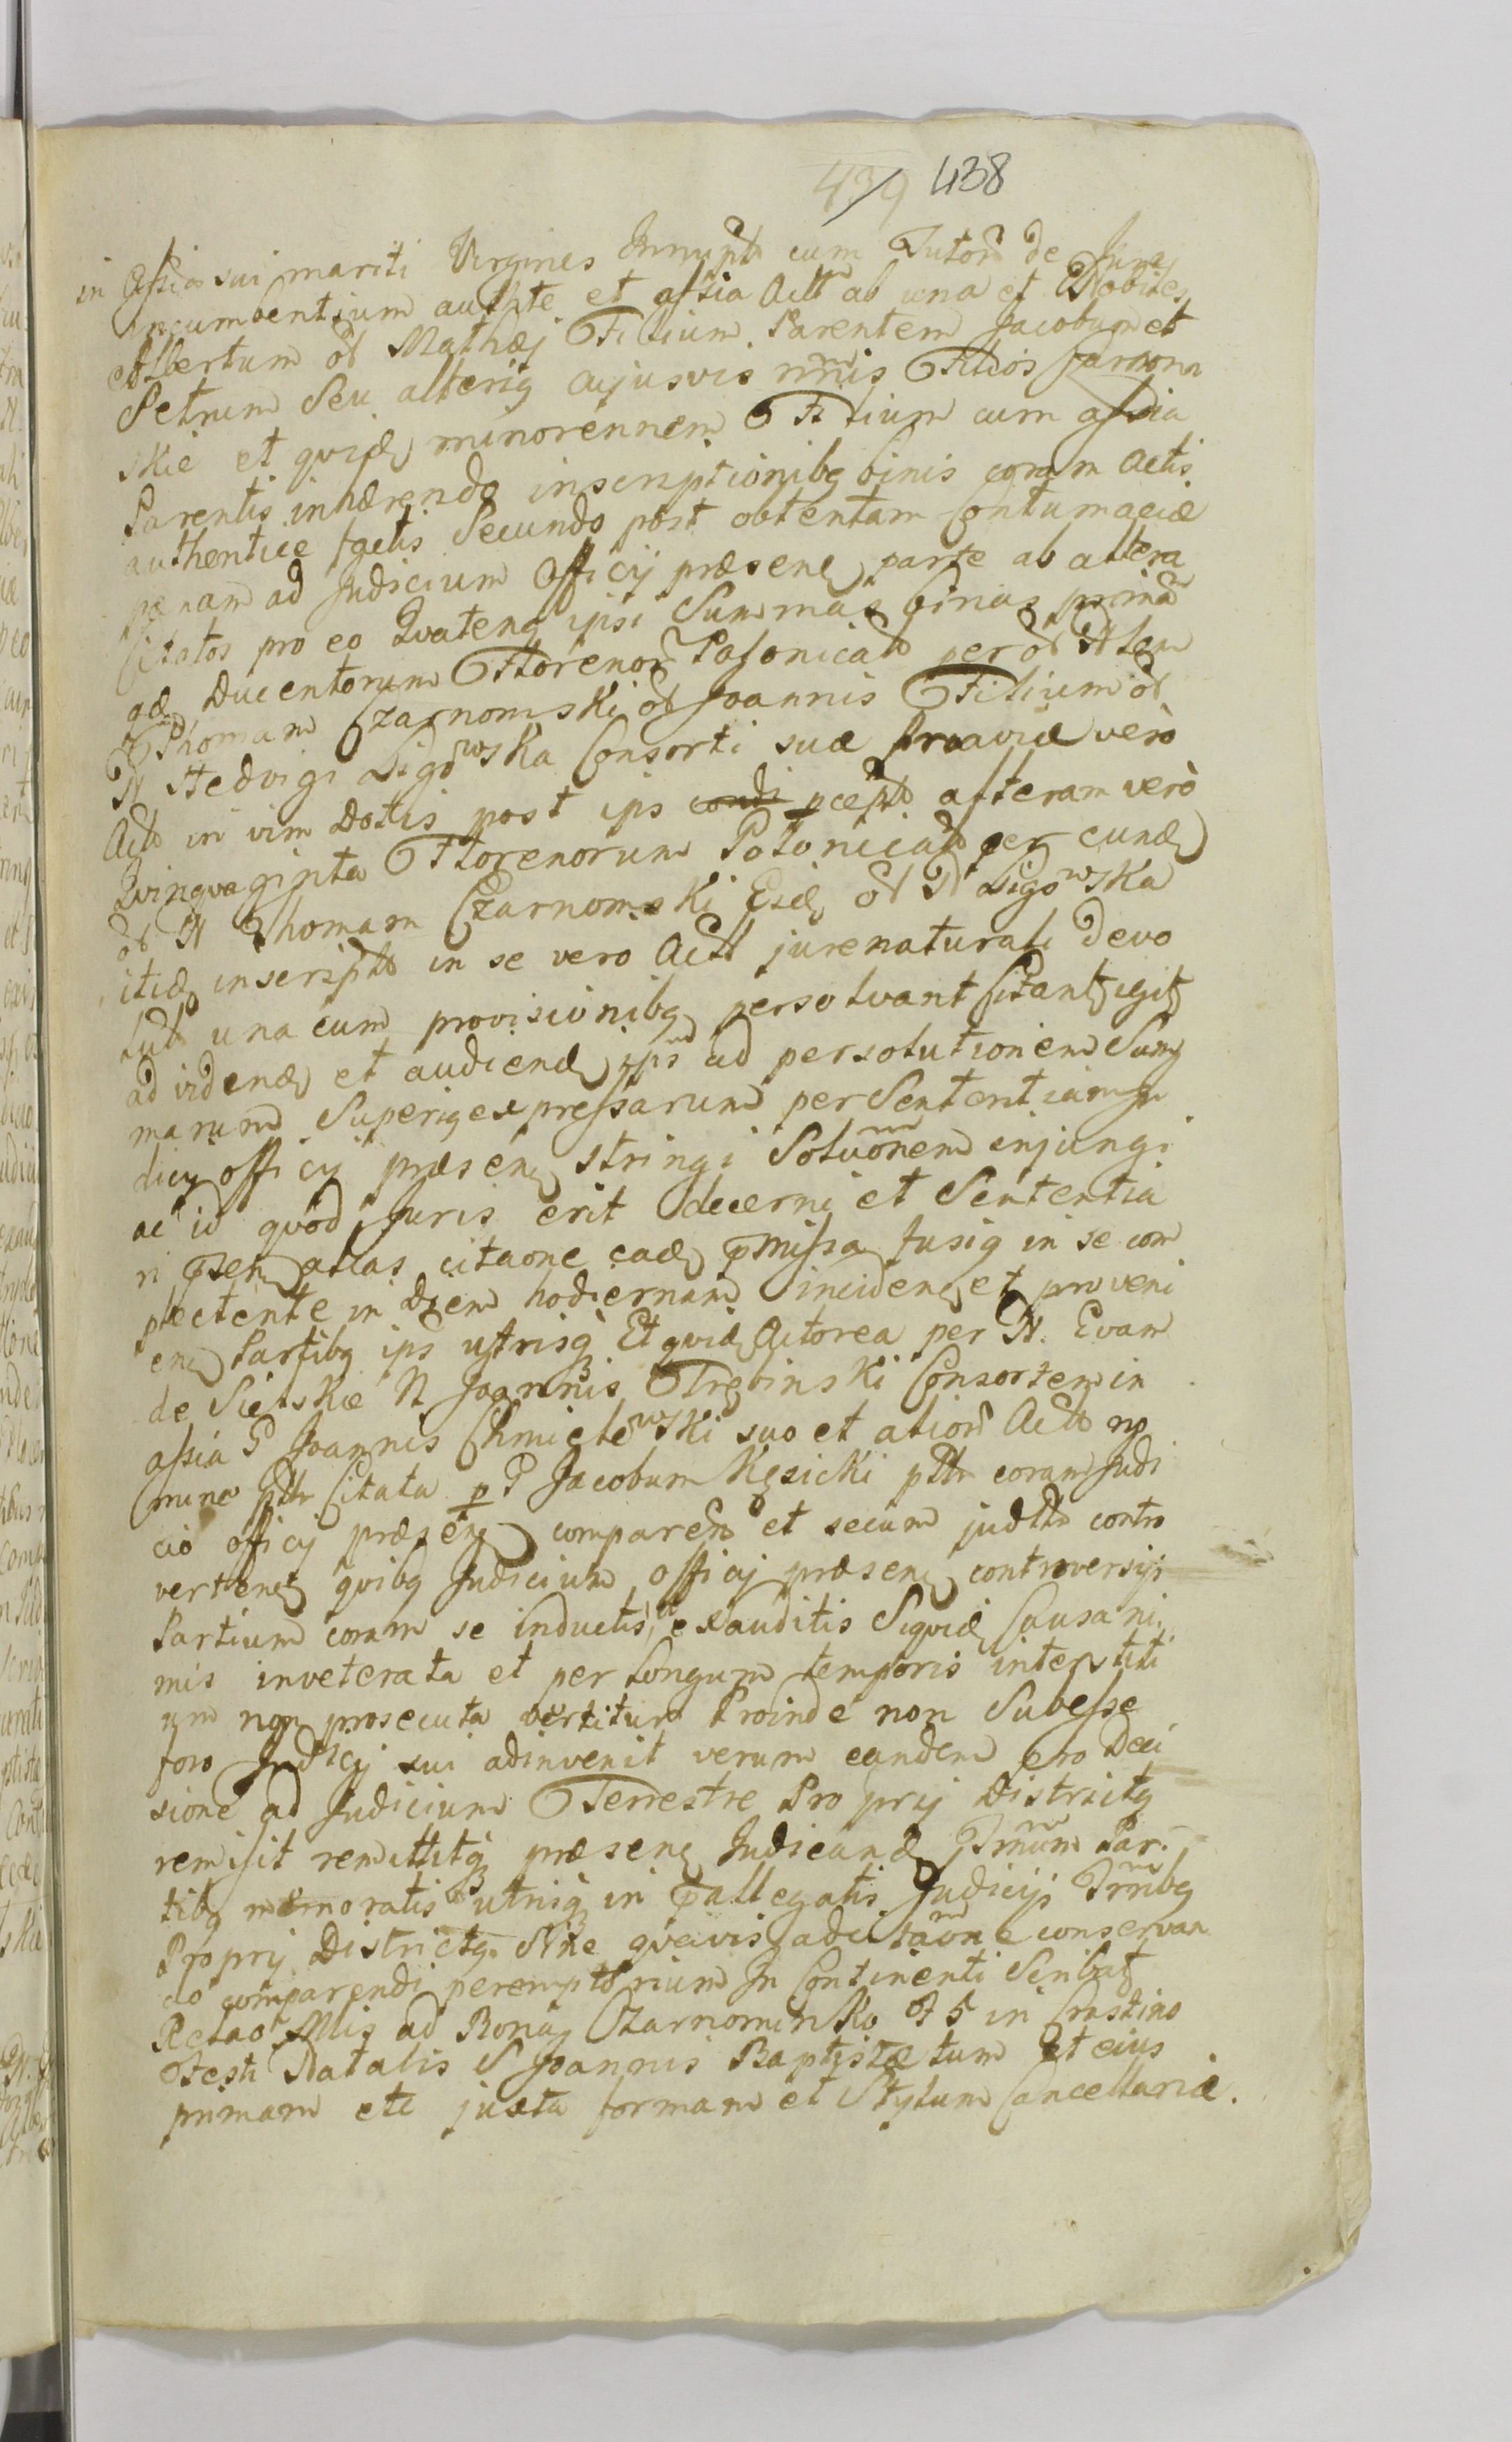 439 438
in assia sui mariti Virgines Innupt cum Tutor de Jure
incumbentium authte et assia Actt ab una et Nobiles
Albertum ol Mathæj Filium Parentem Jacobum et
Petrum seu alteriq cujusvis nnis Filios Czarnom
skie et qvid minorennem Filium cum assia
Parentis inhærendo inscriptionibq binis coram Actis
authentice factis Secundo post obtentam Contumaciæ
pænam ad Judicium Officij præsenq parte ab altera
Citatos pro eo Qvatenq ipsi Summas binas primā
qd Ducentorum Florenor Polonicał per ol N
Thomam Czarnomski ol Joannis Filium ol
N Hedvigi Ligowska Consorti suæ Proaviæ vero
Actt in vim Dotis post ips pcept alteram verò
Qvinqvaginta Florenorum Polonicał per eund
ol N Thomam Czarnomski Eid ol N Ligowska
itid inscriptt in se vero Actt jure naturali devo
lutt una cum provisionibq persolvant Citant igit
ad vidend et audiend ips ad persolutionem Sum
marum Superiq expressarum per Sententiam Ju
dicij officij præsenq stringi Solvonem injungi
ac id qvod Juris erit decerni et Sententia
ri psenq allas citaone ead pmissa fusiq in se com
plectente in Diem hodiernam incidenq et proveni
enq Partibq ips utrisq Et qvid Actorea per N. Evam
de Sielskie N Joannis Trębinski Consortem in
assia P Joannis Chmielewski suo et alior Actt no
mine pttr Citata p P Jacobum Kęsicki pttr coram Judi
cio officij præsenq comparen et secum judttr contro
vertenq qvibq Judicium officij præsenq controversijs
Partium coram se inductis, et exauditis Siqvid Causa ni
mis inveterata et per longum temporis interstiti
um non prosecuta vertitur Proinde non Subesse
foro Judicij sui adinvenit verum eandem pro Deci
sione ad Judicium Terrestre Proprij Districtq
remisit remittitq præsenq Judicand Trnum Par
tibq memoratis utrisq in pallegatis Judicijs Trnibq
Proprij Districtq Sine qvavis adcitaone conservan
do comparendi peremptorium In Continenti Scribat
Relao Mlis ad Bona Czarnominko F 5 in Crastino
Festi Natalis S Joannis Baptistæ tum et eius
primam etc juxta formam et Stylum Cancellariæ.